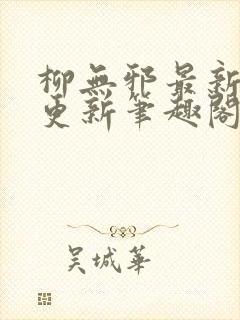 柳無邪最新
更新筆趣閣
吴城華